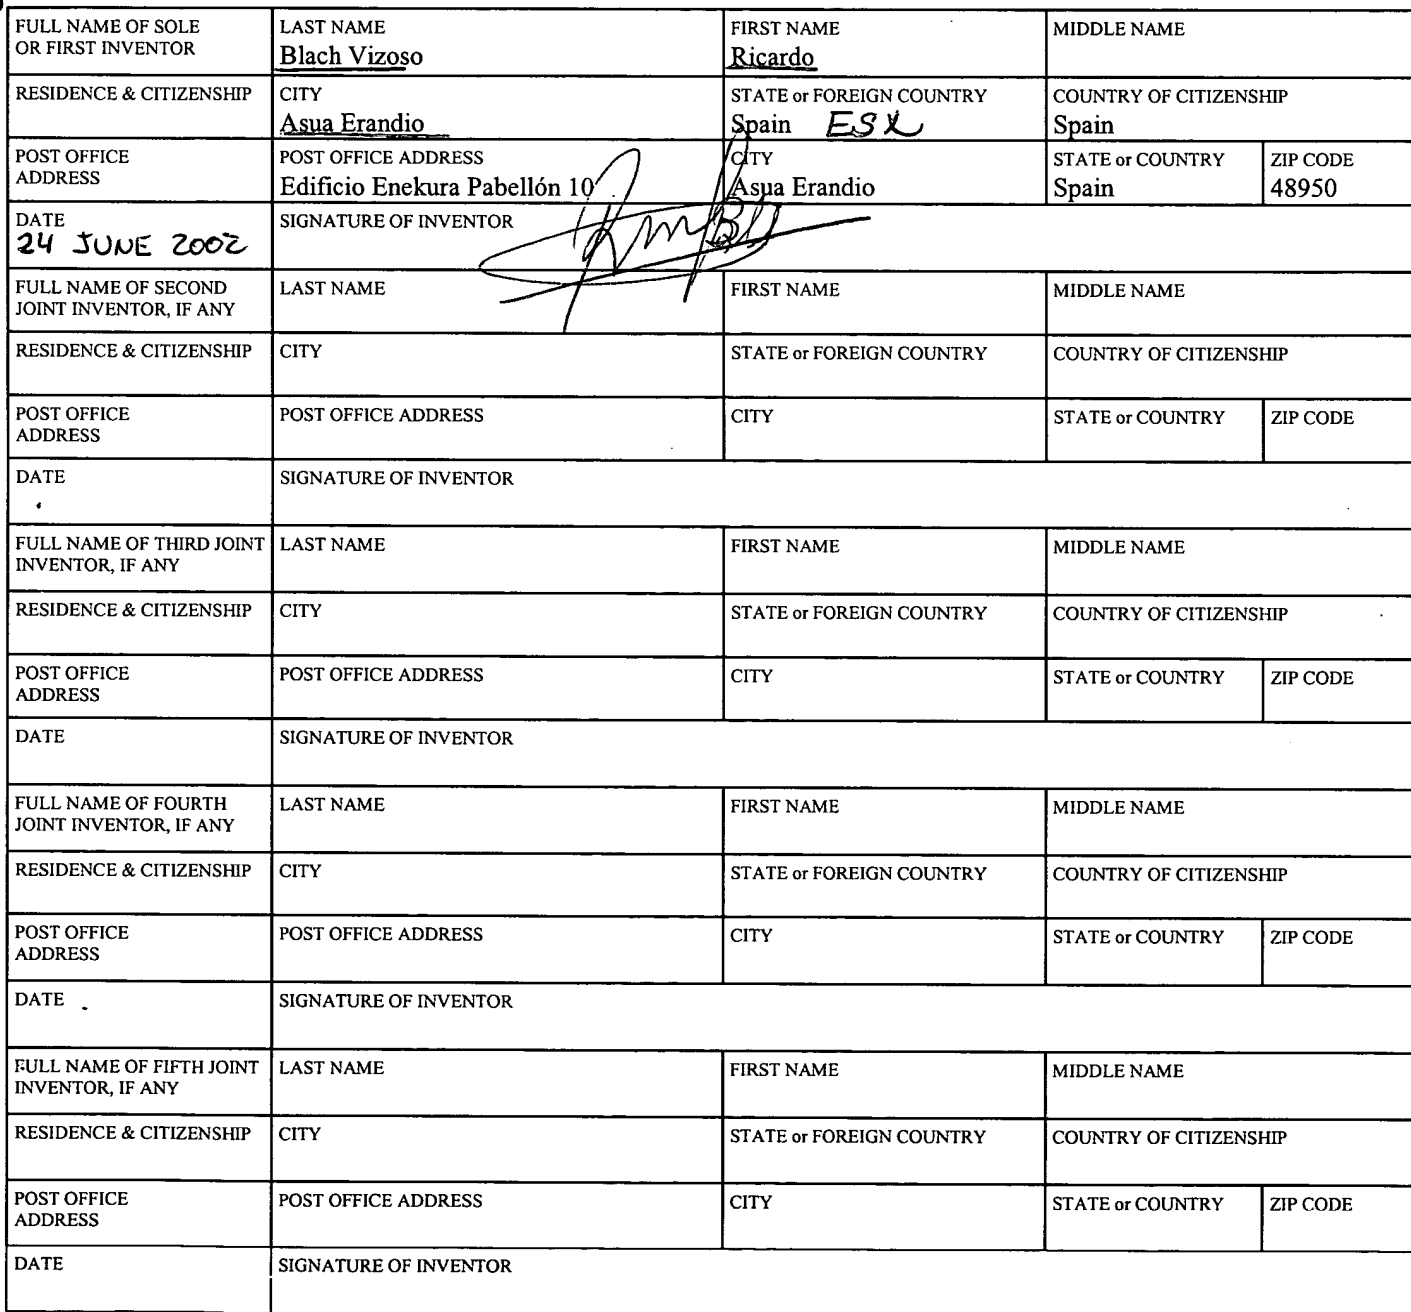 FULL NAME OF SOLE OR FIRST INVENTOR LAST NAME Blach Vizoso FIRST NAME Ricardo MIDDLE NAME
RESIDENCE & CITIZENSHIP CITY Asua Erandio STATE or FOREIGN COUNTRY Spain ESX COUNTRY OF CITIZENSHIP Spain
POST OFFICE ADDRESS POST OFFICE ADDRESS Edificio Enekura Pabellón 10 CITY Asua Erandio STATE or COUNTRY Spain ZIP CODE 48950
DATE 24 JUNE 2002 SIGNATURE OF INVENTOR
FULL NAME OF SECOND JOINT INVENTOR, IF ANY LAST NAME FIRST NAME MIDDLE NAME
RESIDENCE & CITIZENSHIP CITY STATE or FOREIGN COUNTRY COUNTRY OF CITIZENSHIP
POST OFFICE ADDRESS POST OFFICE ADDRESS CITY STATE or COUNTRY ZIP CODE
DATE SIGNATURE OF INVENTOR
FULL NAME OF THIRD JOINT INVENTOR, IF ANY LAST NAME FIRST NAME MIDDLE NAME
RESIDENCE & CITIZENSHIP CITY STATE or FOREIGN COUNTRY COUNTRY OF CITIZENSHIP
POST OFFICE ADDRESS POST OFFICE ADDRESS CITY STATE or COUNTRY ZIP CODE
DATE SIGNATURE OF INVENTOR
FULL NAME OF FOURTH JOINT INVENTOR, IF ANY LAST NAME FIRST NAME MIDDLE NAME
RESIDENCE & CITIZENSHIP CITY STATE or FOREIGN COUNTRY COUNTRY OF CITIZENSHIP
POST OFFICE ADDRESS POST OFFICE ADDRESS CITY STATE or COUNTRY ZIP CODE
DATE SIGNATURE OF INVENTOR
FULL NAME OF FIFTH JOINT INVENTOR, IF ANY LAST NAME FIRST NAME MIDDLE NAME
RESIDENCE & CITIZENSHIP CITY STATE or FOREIGN COUNTRY COUNTRY OF CITIZENSHIP
POST OFFICE ADDRESS POST OFFICE ADDRESS CITY STATE or COUNTRY ZIP CODE
DATE SIGNATURE OF INVENTOR